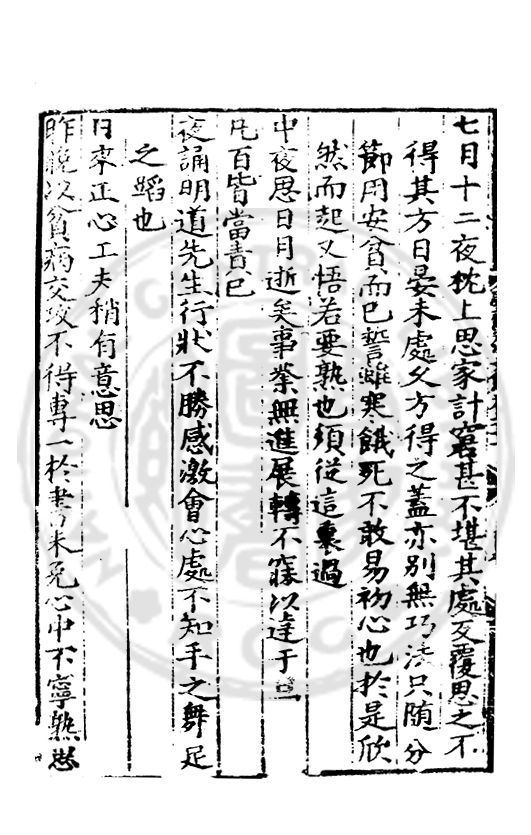 七月十二夜枕上思家計窘甚不堪其處反覆思之不
得其方日晏未處久方得之蓋亦別無巧法只隨分
節用安貧而已誓雖寒餓死不敢易初心也於是欣
然而起又悟若要熟也須從這裏過
中夜思日月逝矣事業無進展轉不寐以達于
凡百皆當責己
夜誦明道先生行狀不勝感激會心處不知手之舞足
之蹈也
日來正心工夫稍有意思
昨晚以貧病交攻不得專一於書未免心中不寧熟思